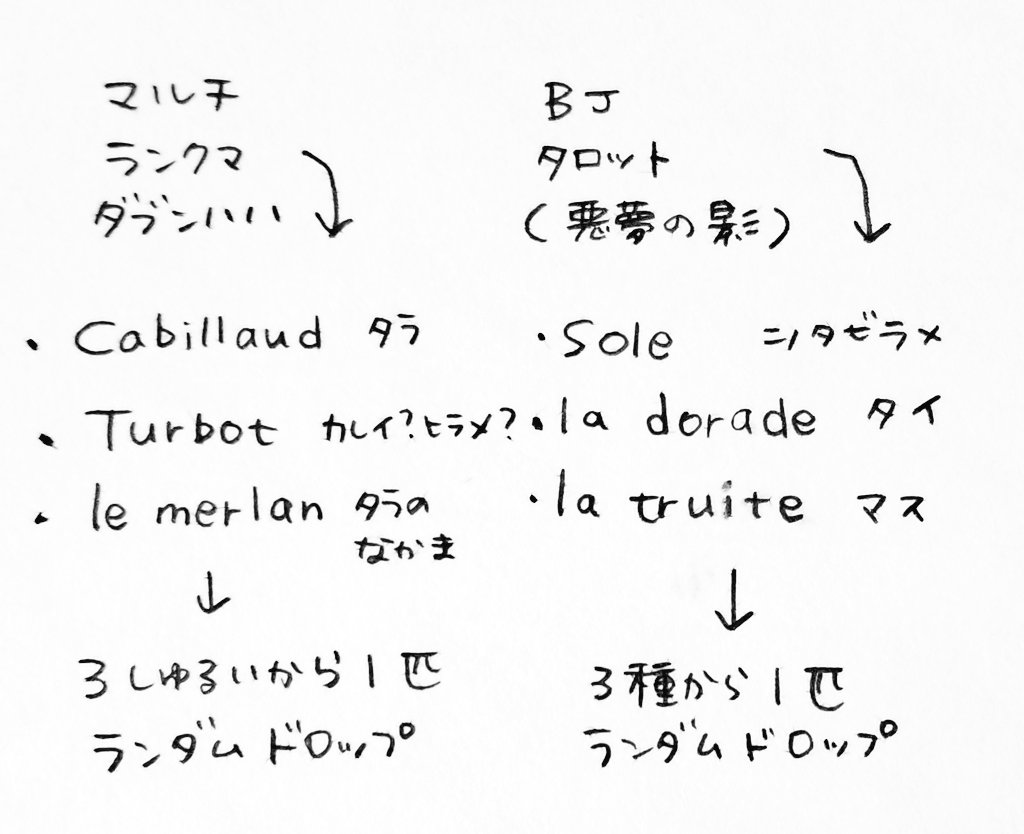 マルチ
ランクマ
ダブンハハ
・Cabillaud タラ
・Turbot カレイ?ヒラメ?
・le merlan タラの
なかま
↓
3しゅるいから1匹
ランダムドロップ
BJ
タロット
(悪夢の影)
・Sole ニシタビラメ
・la dorade タイ
・la truite マス
↓
3種から1匹
ランダムドロップ